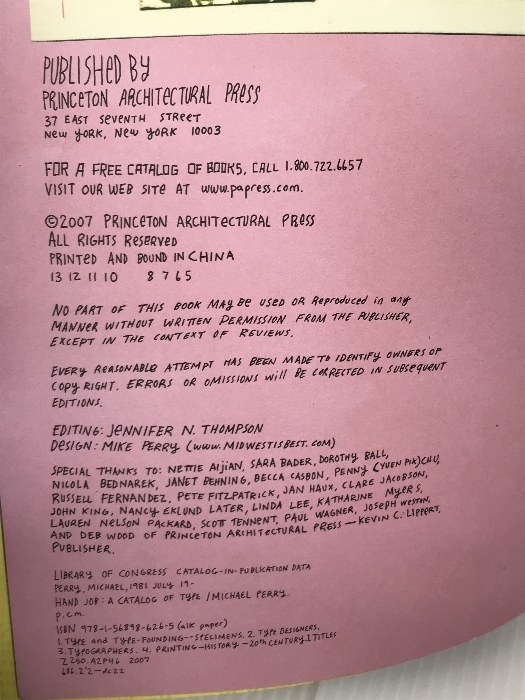 PUBLISHED BY
PRINCETON ARCHITECTURAL PRESS
37 EAST SEVENTH STREET
NEW YORK, NEW YORK 10003
FOR A FREE CATALOG OF BOOKS, CALL 1.800.722.6657
VISIT OUR WEB SITE AT www.papress.com.
©2007 PRINCETON ARCHITECTURAL PRESS
ALL RIGHTS RESERVED
PRINTED AND BOUND IN CHINA
13 12 11 10 8 7 6 5
NO PART OF THIS BOOK MAY BE USED OR REPRODUCED IN ANY
MANNER WITHOUT WRITTEN PERMISSION FROM THE PUBLISHER,
EXCEPT IN THE CONTEXT OF REVIEWS.
EVERY REASONABLE ATTEMPT HAS BEEN MADE TO IDENTIFY OWNERS OF
COPYRIGHT. ERRORS OR OMISSIONS WILL BE CORRECTED IN SUBSEQUENT
EDITIONS.
EDITING: JENNIFER N. THOMPSON
DESIGN: MIKE PERRY (WWW.MIDWESTISBEST.COM)
SPECIAL THANKS TO: NETTIE ALJIAN, SARA BADER, DOROTHY BALL,
NICOLA BEDNAREK, JANET BEHNING, BECCA CASBON, PENNY (YUEN PIK) CHU,
RUSSELL FERNANDEZ, PETE FITZPATRICK, JAN HAUX, CLARE JACOBSON,
JOHN KING, NANCY EKLUND LATER, LINDA LEE, KATHARINE MYERS,
LAUREN NELSON PACKARD, SCOTT TENNENT, PAUL WAGNER, JOSEPH WESTON,
AND DEB WOOD OF PRINCETON ARCHITECTURAL PRESS — KEVIN C. LIPPERT,
PUBLISHER.
LIBRARY OF CONGRESS CATALOG-IN-PUBLICATION DATA
PERRY, MICHAEL, 1981 JULY 19-
HAND JOB: A CATALOG OF TYPE / MICHAEL PERRY.
P. CM.
ISBN 978-1-56898-626-5 (alk paper)
1. TYPE AND TYPE-FOUNDING--SPECIMENS. 2. TYPE DESIGNERS.
3. TYPOGRAPHERS. 4. PRINTING—HISTORY—20TH CENTURY. I TITLES
Z250.A2P46 2007
686.2'2—dc22